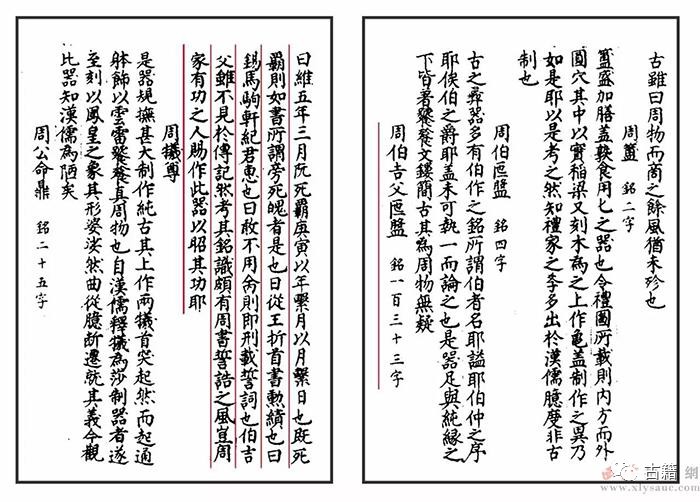 古雖曰周物而商之餘風猶未殄也
周簠 銘二字
簠盛加膳盖熟食用匕之器也令禮圖所載則内方而外
圓穴其中以實稻梁又刻木為之上作龜盖制作之異乃
如是耶以是考之然知禮家之學多出於漢儒臆度非古
制也
周伯匜盤 銘四字
古之彜器多有伯作之銘所謂伯者名耶謚耶伯仲之序
耶侯伯之爵耶盖未可執一而論之也是器足與純緣之
下皆著饕餮文鏤簡古其為周物無疑
周伯吉父匜盤 銘一百三十三字
曰維五年三月既死霸庚寅以年繫月以月繫日也既死
霸則如書所謂旁死魄者是也曰從王折首書勲績也曰
錫馬駒軒紀君恵也曰敉不用命則即刑載誓詞也伯吉
父雖不見於傳記然考其銘識頗有周書誓誥之風豈周
家有功之人賜作此器以昭其功耶
周犧尊
是器規摸甚大制作純古其上作兩犧首突起然而起通
體飾以雲雷饕餮真周物也自漢儒釋犧為莎制器者遂
至刻以鳳皇之象其形婆娑然曲從臆斷遷就其義今觀
比器知漢儒為陋矣
周公命鼎 銘二十五字
古籍 網
www.xlysauc.com